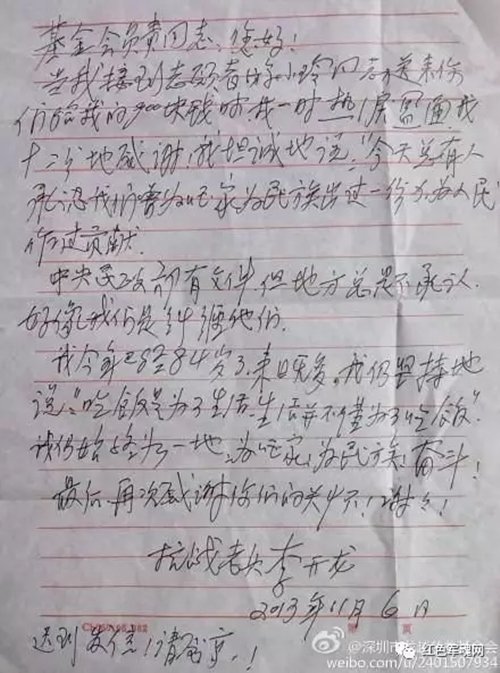 基金会负责同志：您好！
当我接到志愿者 小玲同志送来你
们给我的900块钱时我一时热泪盈面我
十二分地感谢！我坦诚地说：“今天总有人
承认我们曾为国家为民族出过一份力为人民
作过贡献。
中央民政部有文件但地方总是不承认.
好像我们是纠缠他们.
我今年已经84岁了.来日无多，我仍坚持地
说：“吃饭是为了生活.生活并不仅为了吃饭”.
我仍始终为一地：为国家、为民族：奋斗！
最后、再次感谢你们的关怀！谢谢！
抗战老兵李开龙
2013年11月6日
第 页
迟到复信！请 ！
@深圳市 基金会
红色军魂网
weibo.com/u/2401507934